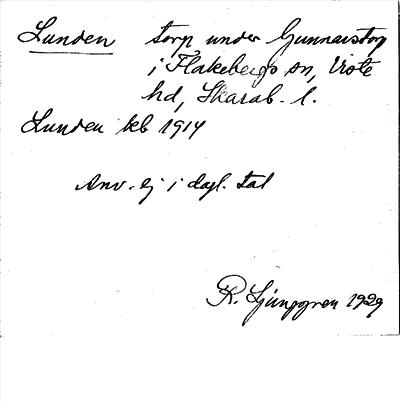 Lunden torp under Gunnarstorp
i Flakebergs sn, Viste
hd, Skarab. l.
Lunden kb 1914
Anv. ej i dagl. tal
R. Ljunggren 1929